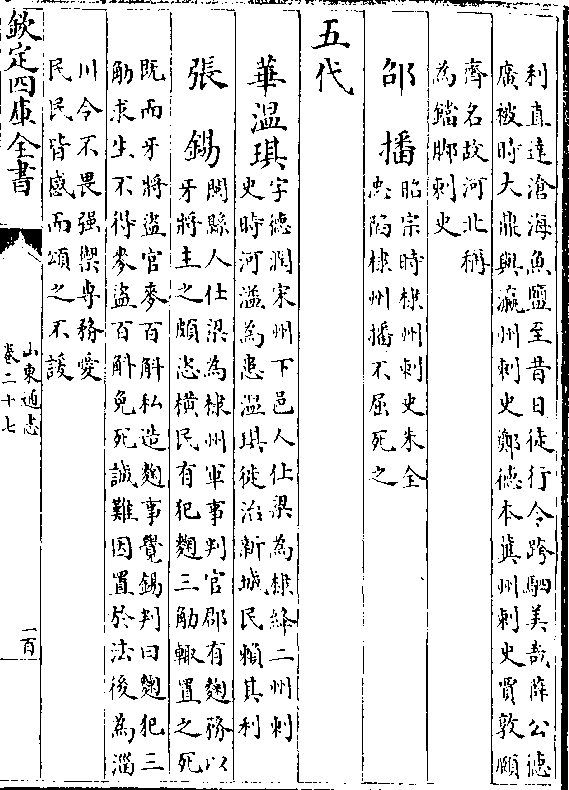 利直達滄海魚鹽至昔日徒行今跨駟美哉薛公德
廣被時大鼎與瀛州刺史鄭德本冀州刺史賈敦頤
齊名故河北稱
為鐺脚刺史
邵播
昭宗時棣州刺史朱全
忠陷棣州播不屈死之
五代
華溫琪
字德潤宋州下邑人仕梁為棣絳二州刺
史時河溢為患溫琪徙治新城民賴其利
張錫
閩縣人仕梁為棣州軍事判官郡有麴務以
牙將主之頗恣橫民有犯麴三觔輒置之死
既而牙將盜官麥百斛私造麴事覺錫判曰麴犯三
觔求生不得麥盜百斛免死誠難因置於法後為淄
川令不畏强禦專務愛
民民皆感而頌之不諼
欽定四庫全書
山東通志
卷二十七
一百